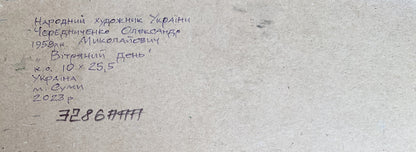 Народний художник України
Чередниченко Олександр
1958р.н. Миколайович
„Вітряний день"
к.о. 10×25,5
Україна
м. Суми
2023 р